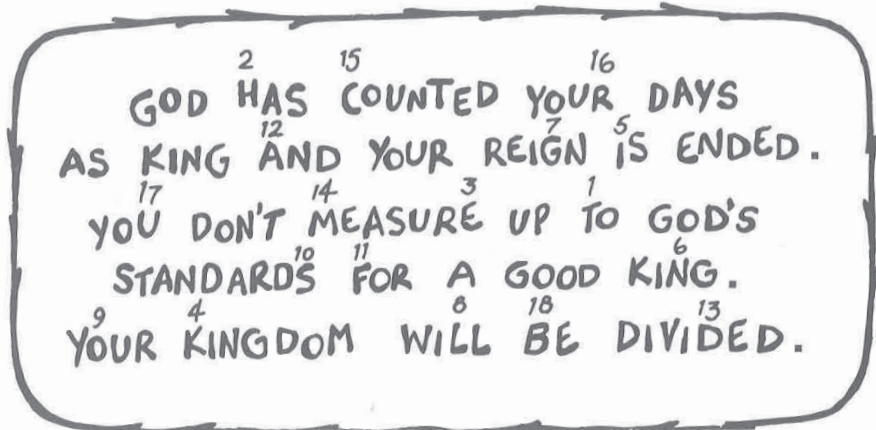 2 15 16
GOD HAS COUNTED YOUR DAYS
12 7 5
AS KING AND YOUR REIGN IS ENDED.
17 14 3 1
YOU DON'T MEASURE UP TO GOD'S
10 11 6
STANDARDS FOR A GOOD KING.
9 4 8 18 13
YOUR KINGDOM WILL BE DIVIDED.